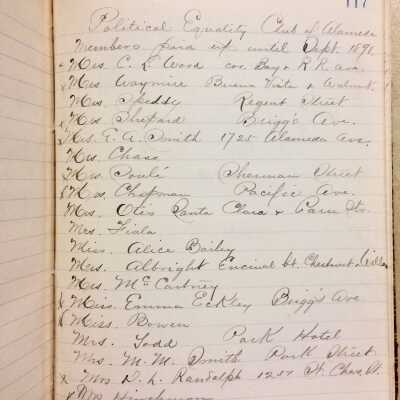 Political Equality Club of Alameda
Members paid up until Sept. 1898
x Mrs. C. L. Wood cor. Bay & R.R. ave.
x Mrs Waymire Buena Vista & Walnut.
Mrs. Speddy Regent Street
x Mrs Shepard Briggs Ave.
Mrs. E. A. Smith 1725 Alameda Ave.
Mrs. Chase
x Mrs Soulé Sherman Street
Mrs. Chapman Pacific Ave.
Mrs. Otis Santa Clara & Paru Sts.
Mrs. Fiala
Miss. Alice Bailey
Mrs. Albright Encinal bt. Chestnut &
Mrs. McCartney
x Miss. Emma Eckley Briggs Ave
Miss. Bowen
Mrs. Todd Park Hotel
Mrs. M. M. Smith Park Street
x Mrs D. L. Randolph 1257 St. Chas. St.
x Mrs Hinchman